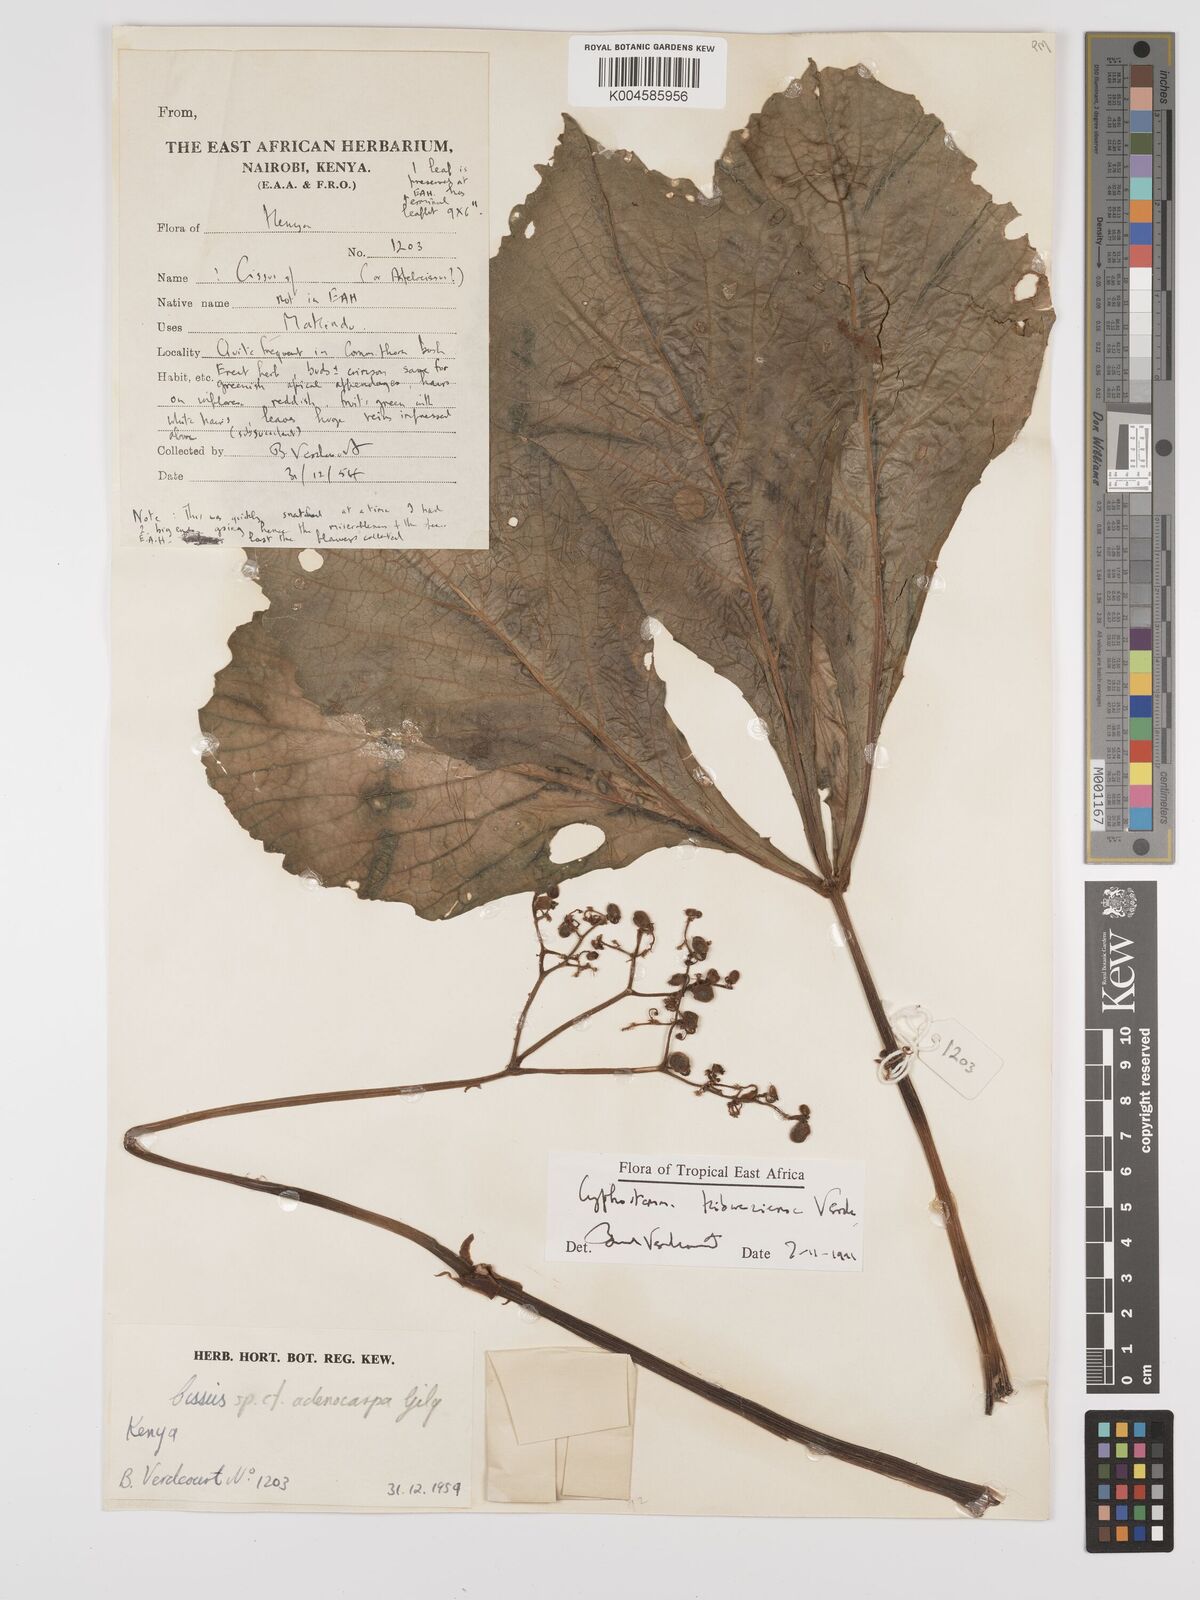 ROYAL BOTANIC GARDENS KEW
K004585956
PM
From,
THE EAST AFRICAN HERBARIUM,
NAIROBI, KENYA.
(E.A.A. & F.R.O.)
1 leaf is
preserved at
EAH. has
terminal
leaflet 9x6".
Flora of Kenya
No. 1203
Name ? Cissus sp (or Ampelocissus?)
Native name not in EAH
Uses Makindu.
Locality Quite frequent in Comm. thorn bush
Habit, etc. Erect herb, buds ± crimson save for
greenish apical appendages, hairs
on inflores. reddish, fruits green with
white hairs leaves huge veins impressed
above (subsucculent)
Collected by B Verdcourt
Date 31/12/54
Note: This was quickly snatched at a time I had
2 big going hence the miserableness & the
E.A.H. Lost the flowers collected
1203
Flora of Tropical East Africa
Cyphostemma kibweziense Verdc.
Det. Bernard Verdcourt Date 7-11-1991
HERB. HORT. BOT. REG. KEW.
Cissus sp. cf. adenocarpa Gilg
Kenya
B. Verdcourt No 1203
31.12.1954
inches
centimeters
Don Williams
M001167
Kew
Royal Botanic Gardens
0 1 2 3 4 5 6 7 8 9 10
cm
copyright reserved